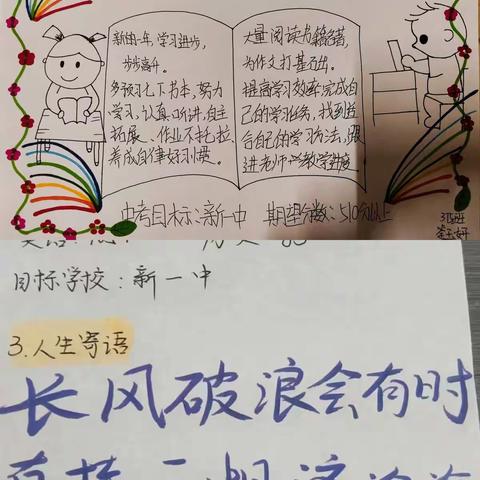 新的一年，学习进步，
步步高升。
多预习七下书本，努力
学习，认真听讲，自主
拓展、作业不拖拉，
养成自律好习惯。
大量阅读书籍名著，
为作文打基础。
提高学习效率完成自
己的学习任务，找到适
合自己的学习方法，跟
进老师教学进度
中考目标：新一中 期望分数：510分以上
目标学校：新一中
3.人生寄语
长风破浪会有时